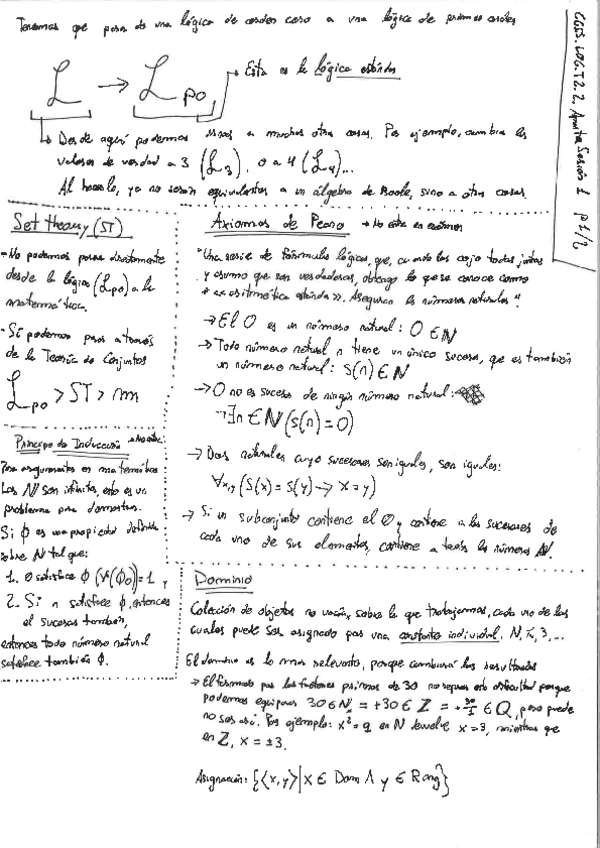 Tenemos que pasar de una lógica de orden cero a una lógica de primer orden
CGTS.LOG.T2.2. Sesión 1 p 1/2
L → L PO
→ Esta es la lógica estándar
→ Desde aquí podemos irnos a muchas otras cosas. Por ejemplo, cambiar los
valores de verdad a 3 (L3), o a 4 (L4)...
Al hacerlo, ya no serán equivalentes a un álgebra de Boole, sino a otras cosas.
Set theory (ST)
- No podemos pasar directamente
desde la lógica (L PO) a la
matemática.
- Sí podemos pasar a través
de la Teoría de Conjuntos
L PO > ST > m
Principio de Inducción →
Para asegurarlos en matemáticas
Los N son infinitos, esto es un
problema para demostrar.
Si φ es una propiedad definida
sobre N tal que:
1. 0 satisface φ (V(φ0))=1 y
2. Si n satisface φ, entonces
el sucesor también,
entonces todo número natural
satisface también φ.
Axiomas de Peano → No entra en exámenes
"Una serie de fórmulas lógicas, que, cuando las cojo todas juntas
y asumo que son verdaderas, obtengo lo que se conoce como
"«aritmética estándar». Aseguran los números naturales".
→ El 0 es un número natural: 0 ∈ N
→ Todo número natural n tiene un único sucesor, que es también
un número natural: S(n) ∈ N
→ 0 no es sucesor de ningún número natural:
¬∃n ∈ N (S(n) = 0)
→ Dos naturales cuyo sucesores son iguales, son iguales:
∀x,y (S(x) = S(y) → x = y)
→ Si un subconjunto contiene el 0 y contiene a los sucesores de
cada uno de sus elementos, contiene a todos los números N.
Dominio
Colección de objetos no vacía, sobre la que trabajamos, cada uno de los
cuales puede ser asignado por una constante individual. N, π, 3, ...
El dominio es lo más relevante, porque cambiará los resultados
→ El formado por los factores primos de 30 no supone esta dificultad porque
podemos equiparar 30 ∈ N = +30 ∈ Z = +30/1 ∈ Q, pero puede
no ser así. Por ejemplo: x² = 9 en N devuelve x = 3, mientras que
en Z, x = ±3.
Asignación: {⟨x, y⟩ | x ∈ Dom ∧ y ∈ Rang}